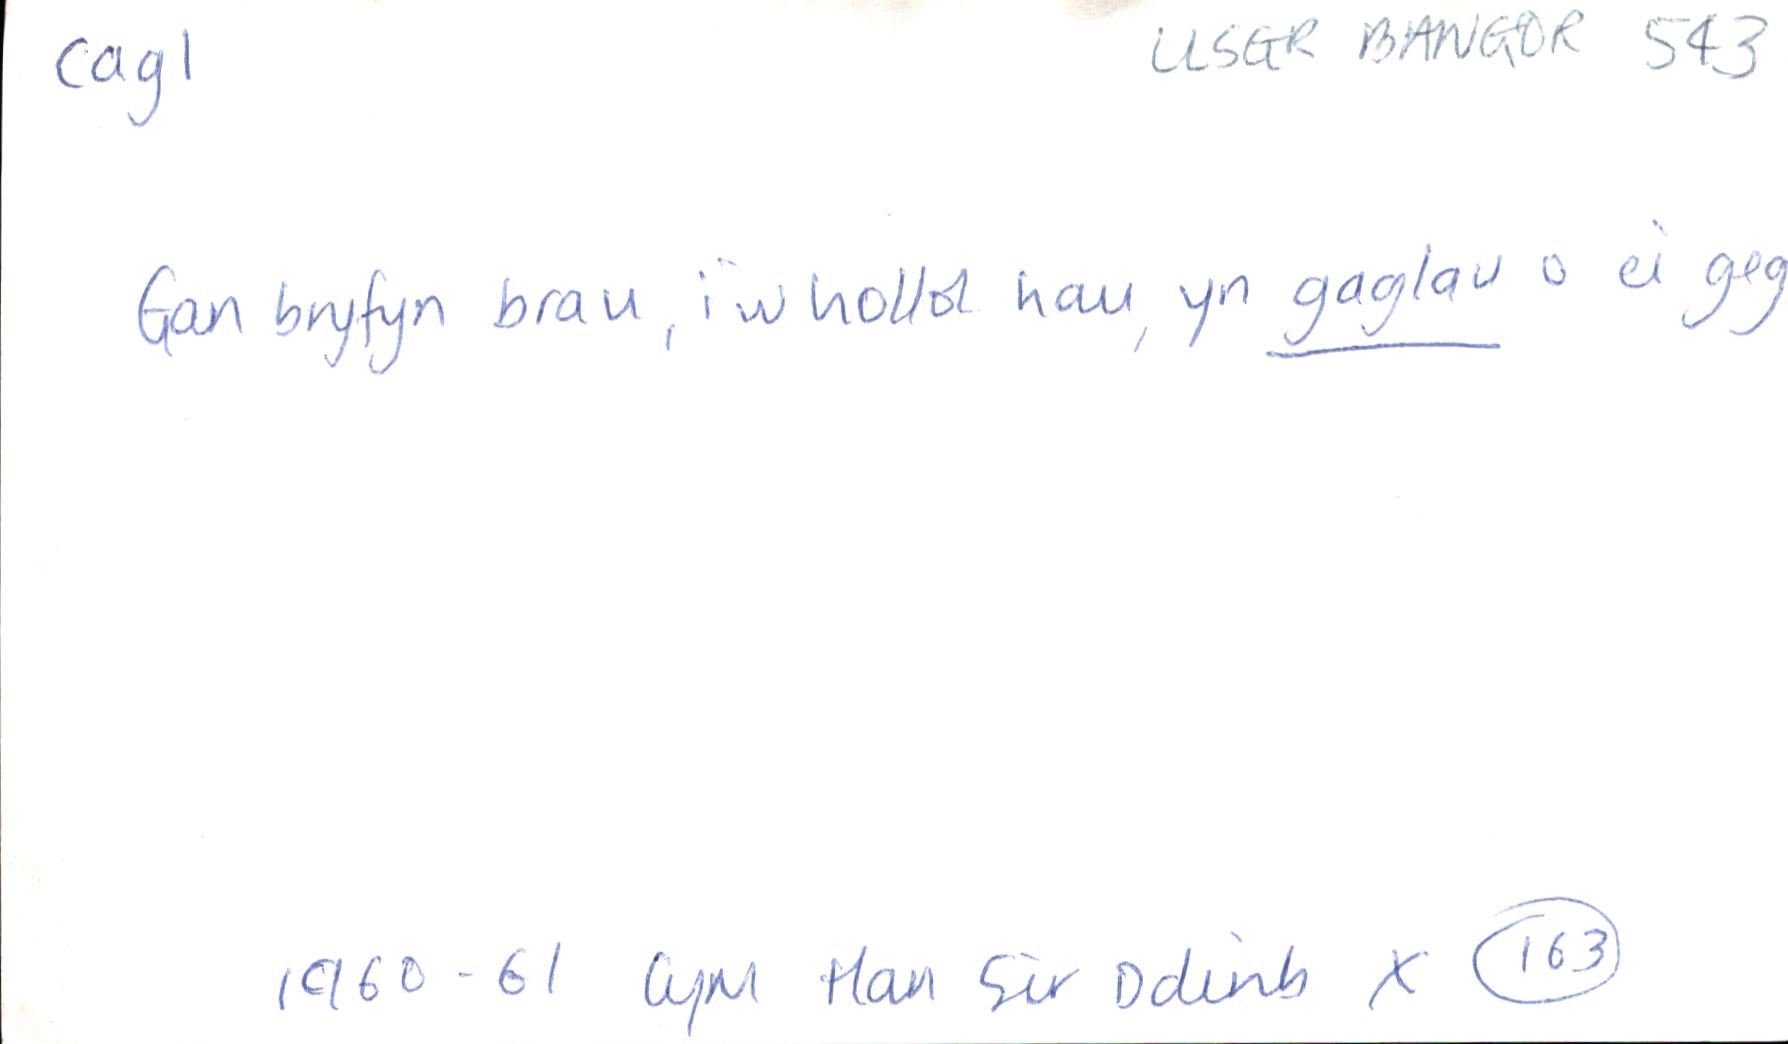 cagl
LLSGR BANGOR 543
Gan bryfyn brau, i'w hollol hau, yn gaglau o ei geg
1960-61 Cym Han Sir Ddinb X 163